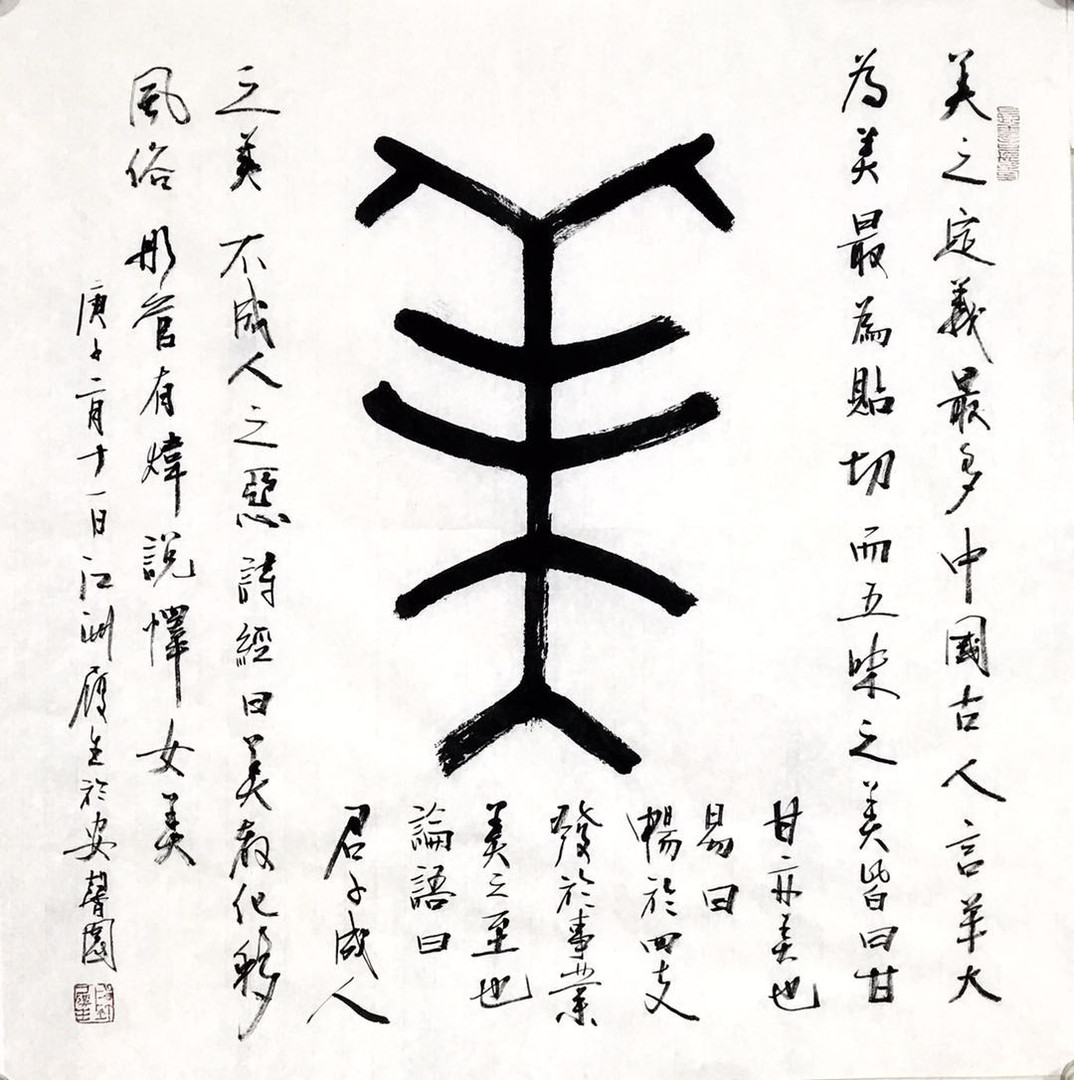 美
美之定義最多中國古人言羊大
為美最為貼切而五味之美皆曰甘
甘亦美也
易曰
暢於四支
發於事業
美之至也
論語曰
君子成人
之美不成人之惡詩經曰美教化移
風俗彤管有煒說懌女美
庚子二月十一日江洲於安馨園